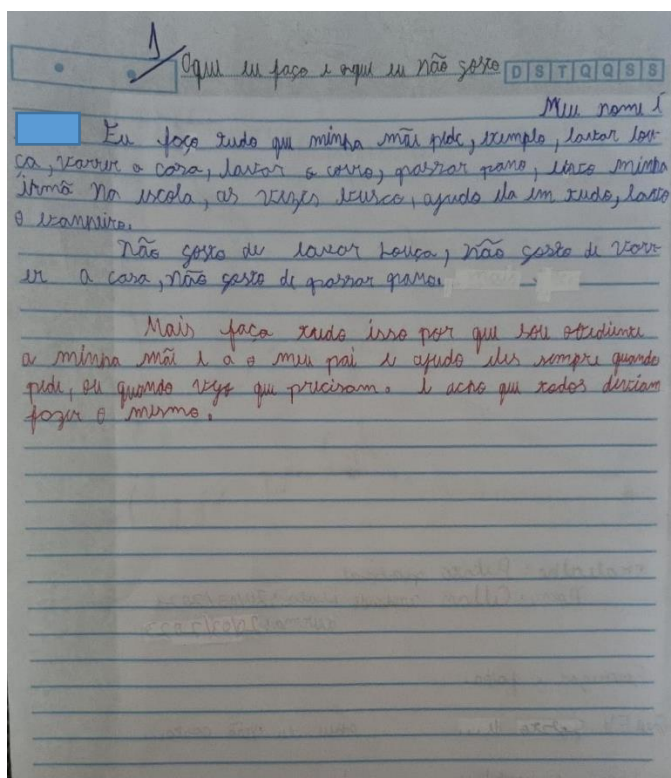 1
Oque eu faço e oque eu não gosto D S T Q Q S S
Meu nome é
Eu faço tudo que minha mãe pede, exemplo, lavar lou-
ça, varrer a casa, lavar o carro, passar pano, levo minha
irmã na escola, as vezes busco, ajudo ela em tudo, lavo
o banheiro.
Não gosto de lavar Louça, não gosto de varr-
er a casa, não gosto de passar pano.
Mais faço tudo isso por que sou obediente
a minha mãe e a o meu pai e ajudo eles sempre quando
pede, ou quando vejo que precisam. e acho que todos deviam
fazer o mesmo.